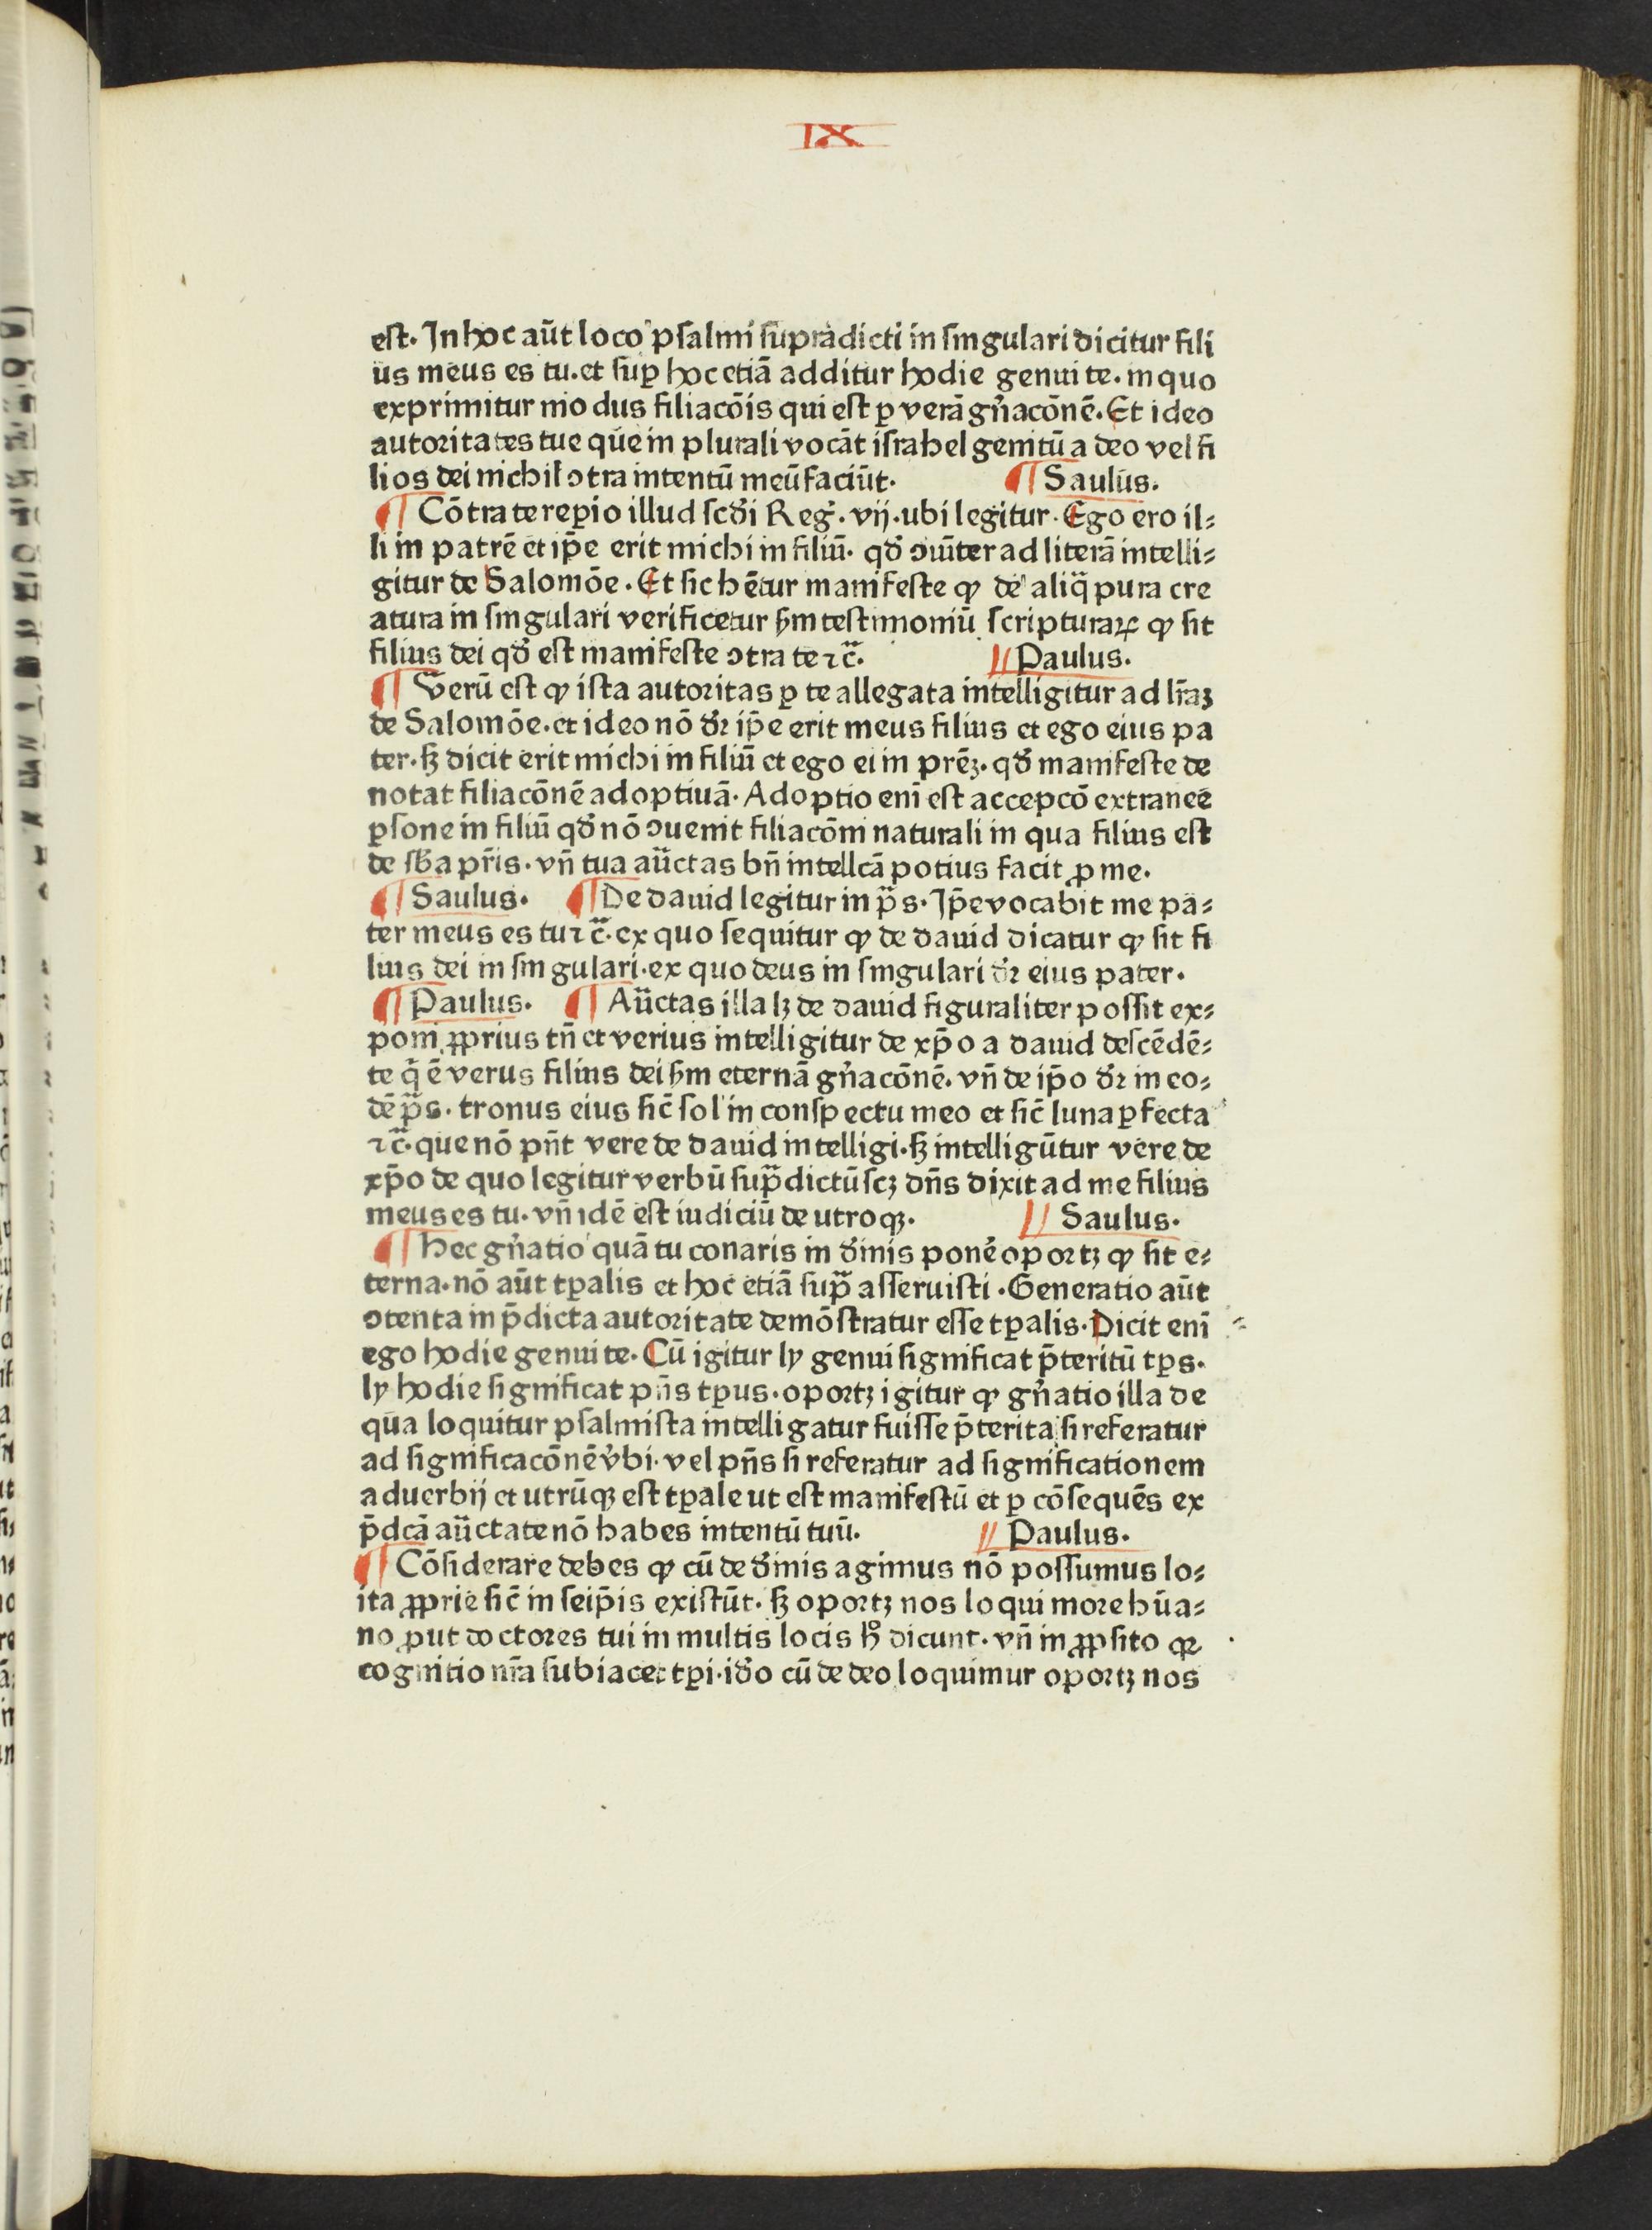 IX
est. In hoc aūt loco psalmi supradicti in singulari dicitur fili
us meus es tu. et suꝑ hoc etiā additur hodie genui te. in quo
exprimitur modus filiacōis qui est ꝑ verā gn̄acōnē. Et ideo
autoritates tue que in plurali vocāt israhel genitū a deo vel fi
lios dei nichil ꝯtra intentū meū faciūt. ¶ Saulus.
¶ Cōtra te reꝑio illud scd̄i Reḡ. vij. ubi legitur. Ego ero il⸗
li in patrē et ip̄e erit michi in filiū. qd̄ ꝯiūter ad literā intelli⸗
gitur de Salomōe. Et sic hētur manifeste ꝙ de aliq̄ pura cre
atura in singulari verificetur s̄m testimoniū scripturaꝝ ꝙ sit
filius dei qd̄ est manifeste ꝯtra te ⁊c̄. // Paulus.
¶ Verū est ꝙ ista autoritas ꝑ te allegata intelligitur ad lr̄aꝫ
de Salomōe. et ideo nō dr̄ ip̄e erit meus filius et ego eius pa
ter. sꝫ dicit erit michi in filiū et ego ei in prēꝫ. qd̄ manifeste de
notat filiacōnē adoptiuā. Adoptio enī est accepcō extranee
ꝑsone in filiū qd̄ nō ꝯuenit filiacōni naturali in qua filius est
de sb̄a pr̄is. vn̄ tua auc̄tas bn̄ intellcā potius facit ꝓ me.
¶ Saulus. ¶ De dauid legitur in p̄s. Ip̄e vocabit me pa⸗
ter meus es tu ⁊c̄. ex quo sequitur ꝙ de dauid dicatur ꝙ sit fi
lius dei in singulari. ex quo deus in singulari dr̄ eius pater.
¶ Paulus. ¶ Auc̄tas illa lꝫ de dauid figuraliter possit ex⸗
poni ꝓprius tn̄ et verius intelligitur de xp̄o a dauid descēdē⸗
te q̄ ē verus filius dei s̄m eternā gn̄acōnē. vn̄ de ip̄o dr̄ in eo⸗
dē p̄s. tronus eius sic̄ sol in conspectu meo et sic̄ luna ꝑfecta
⁊c̄. que nō pn̄t vere de dauid intelligi. sꝫ intelligūtur vere de
xp̄o de quo legitur verbū sup̄dictū scꝫ dn̄s dixit ad me filius
meus es tu. vn̄ idē est iudiciū de utroqꝫ. // Saulus.
¶ Hec gn̄atio quā tu conaris in diuīnis ponē oportꝫ ꝙ sit e⸗
terna. nō aūt tꝑalis et hoc etiā sup̄ asseruisti. Generatio aūt
ꝯtenta in p̄dicta autoritate demōstratur esse tꝑalis. Dicit enī
ego hodie genui te. Cū igitur ly genui significat p̄teritū tꝑs.
ly hodie significat pn̄s tꝑus. oportꝫ igitur ꝙ gn̄atio illa de
qua loquitur psalmista intelligatur fuisse p̄terita si referatur
ad significacōnē v̄bi. vel pn̄s si referatur ad significationem
aduerbij et utrūqꝫ est tꝑale ut est manifestū et ꝑ cōsequēs ex
p̄dcā auc̄tate nō habes intentū tuū. // Paulus.
¶ Cōsiderare debes ꝙ cū de d̄inis agimus nō possumus lo⸗
ita ꝓprie sic̄ in seip̄is existūt. sꝫ oportꝫ nos loqui more hūa⸗
no ꝓut doctores tui in multis locis hº dicunt. vn̄ in ꝓposito qꝛ
cognitio nr̄a subiacet tꝑi. id̄o cū de deo loquimur oportꝫ nos